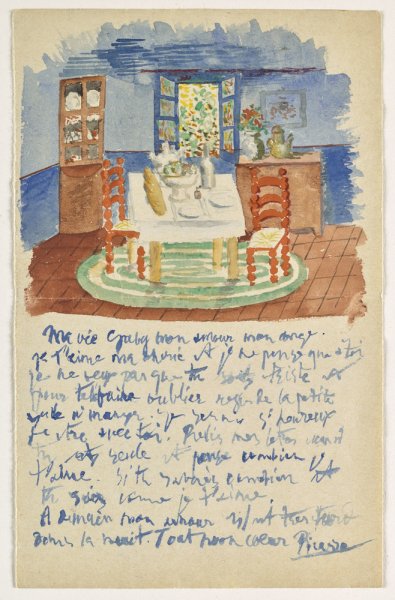 Ma vie Gaby mon amour mon ange.
je t'aime ma chérie et je ne pense qu'a toi
je ne veux pas que tu sois triste et
pour te faire oublier regarde la petite
salle a manger. je serai si heureux
lettres avant
tu es seule et pense combien je
t'aime. Si tu savais combien et
tu sais comme je t'aime.
A demain mon amour il est très tard
dans la nuit. Tout mon cœur Picasso